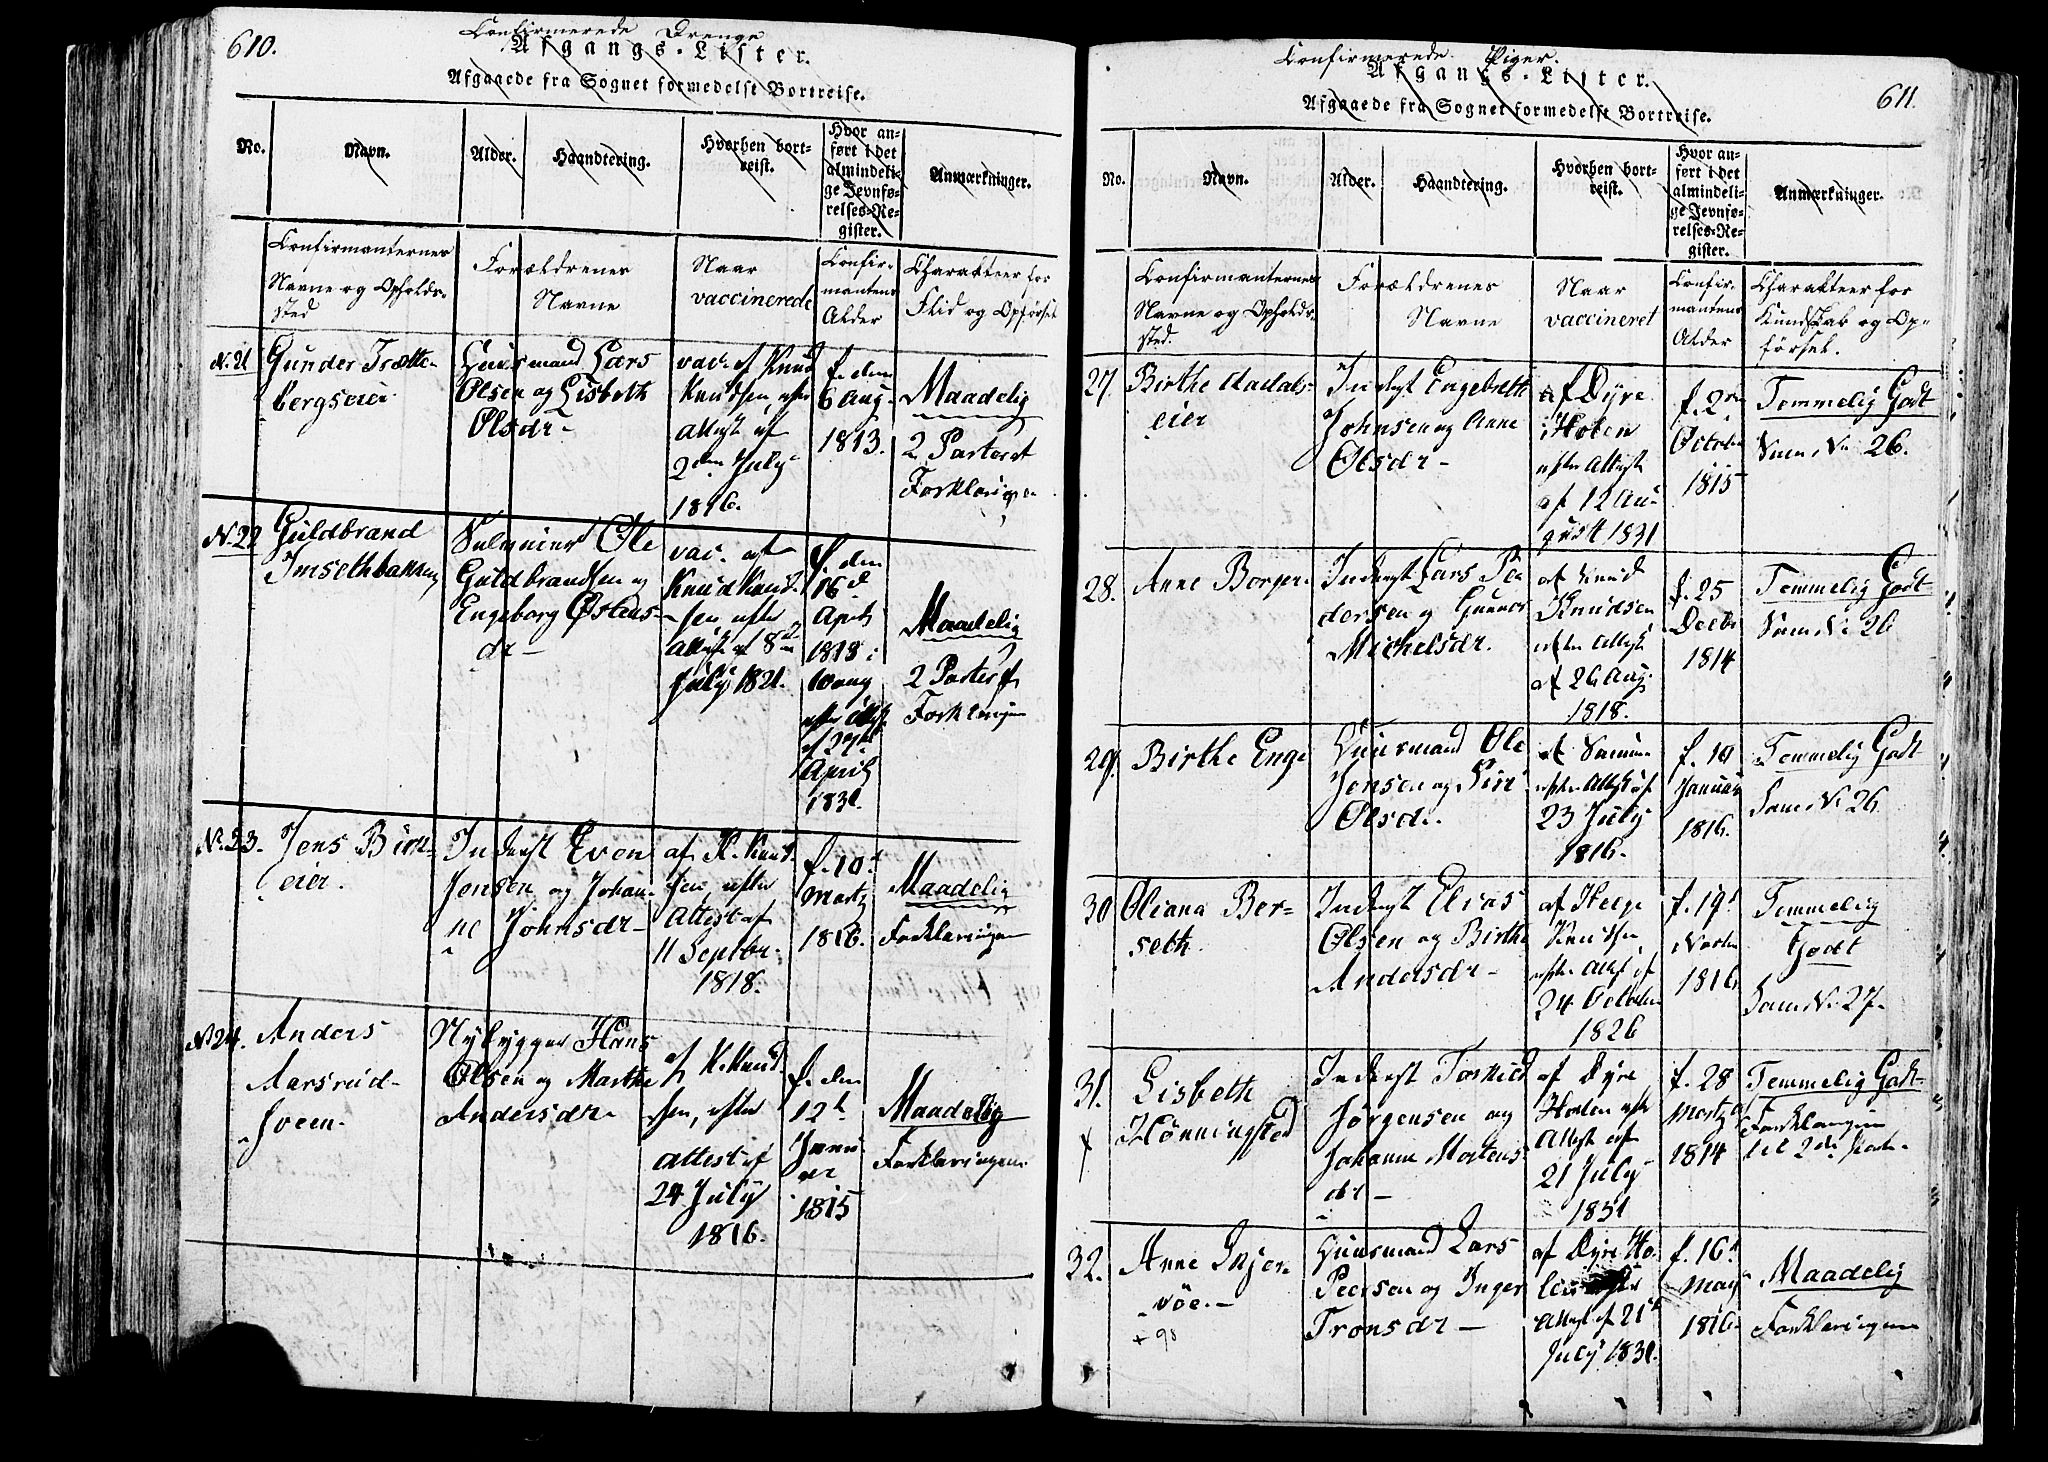 610.
Confirmerede Drenge
Afgangs-Lister.
Afgaaede fra Sognet formedelst Bortreise.
No.
Navn.
Alder.
Haandtering.
Hvorhen bort-
reist.
Hvor an-
ført i det
almindeli-
ge Jevnfø-
relses-Re-
gister.
Anmærkninger.
Confirmanternes
Navne og Opholds-
sted
Forældrenes
Navne
Naar
vaccinerede
Confir-
mantens
Alder
Charakteer for
Flid og Opførsel
N. 21
Gunder Trætte-
bergseier
Huusmand Lars
Olsen og Lisbeth
Olsdr-
vac. af Knud
Knudsen, efter
attest af
2den July
1816.
f. den
6 Aug.
1813.
Maadelig
2 Parter af
Forklaringen
N. 22
Guldbrand
Imsethbakken
Ole
Guldbrandsen og
Engeborg Østens-
dr-
vac. af
Knud Knud-
sen efter
attest af 8de
July 1821.
f. den
16d
April
1813 i
efter attest
af 27de
April
1831.
Maadelig
2 Parter af
Forklaringen
N. 23.
Jens Birk-
eier.
Inderst Even
Jensen og Johan-
ne Johnsdr-
af K. Knud-
sen, efter
Attest af
11 Septbr.
1818.
f. 10d
Martz
1816.
Maadelig
Forklaringen
N. 24.
Anders
Aarsrud-
sveen.
Nybygger Hans
Olsen og Marthe
Andersdr.
af K. Knud-
sen, efter
attest af
24 July
1816.
f. den
12t
Janu-
ar
1815
Maadelig
Forklaringen
611.
Confirmerede Piger.
Afgangs-Lister.
Afgaaede fra Sognet formedelst Bortreise.
No.
Navn.
Alder.
Haandtering.
Hvorhen bort-
reist.
Hvor an-
ført i det
almindeli-
ge Jevnfø-
relses-Re-
gister.
Anmærkninger.
Confirmanternes
Navne og Opholds-
sted.
Forældrenes
Navne
Naar
vaccineret
Confir-
mantens
Alder
Charakteer for
Kundskab og Op-
førsel.
27.
Birthe Aadals-
eier
Inderst Engebreth
Johnsen og Anne
Olsdr-
af Dyre
Holen
efter Attest
af 12 Au-
gust 1831
f. 2den
October
1815
Temmelig Godt
Som No 26.
28.
Anne Borger
Inderst Lars Pe-
dersen og Gunnor
Michelsdr.
af Knud
Knudsen
efter Attest
af 26 Aug.
1818.
f. 25
Decbr
1814
Temmelig Godt
Som No 26
29.
Birthe Enge
Huusmand Ole
Jensen og Siri
Olsdr.
af Samme
efter Attest af
23 July
1816.
f. 10
Januar
1816.
Temmelig Godt
Som No 26
30
Oliana Ber-
seth.
Inderst Elias
Olsen og Birthe
Andersdr-
af Helge
Knudsen
efter Attest af
24 October
1826
f. 19d
Novbr
1816
Temmelig
Godt
Som No 27.
31.
Lisbeth
Hønningstad
Inderst Torkild
Jørgensen og
Johanne Mortens-
dr-
af Dyre
Holen efter
Attest af
21 July
1831
f. 28
Martz
1814
Temmelig Godt
Forklaringen
til 2de Part-
32.
Anne Skjer-
vøe.-
+ 98
Huusmand Lars
Peersen og Inger
Tronsdr-
af Dyre Ho-
len efter
Attest af 21d
July 1831.
f. 16d
May
1816.
Maadelig
Forklaringen